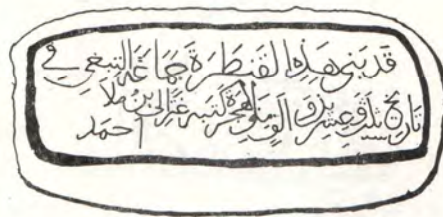 قد بنى هذه القنطرة جماعة التبغي في
تاريخ سنة وعشرين والف من الهجرة كتبه غزالى بن ملا
احمد